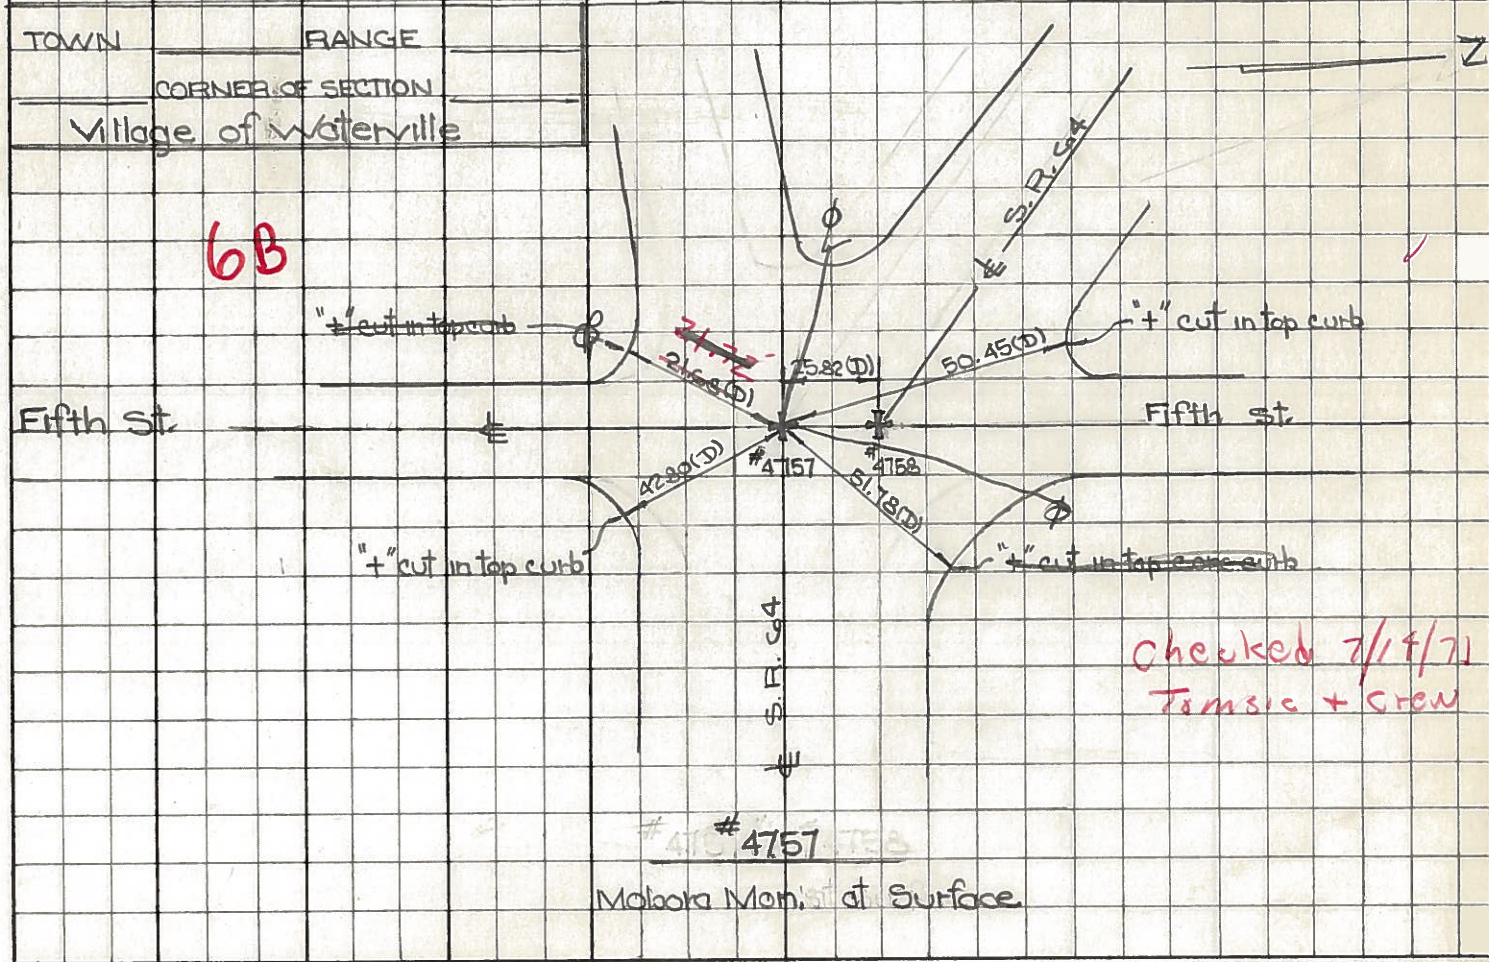 TOWN RANGE
CORNER OF SECTION
Village of Waterville
Z
6B
S.R. 64
℄
"+" cut in top curb
"+" cut in top curb
21.72
21.68(D)
25.82(D)
50.45(D)
Fifth St.
℄
Fifth St.
#4757
#4758
42.80(D)
51.78(D)
"+" cut in top curb
"+" cut in top conc curb
S.R. 64
℄
Checked 7/14/71
Tomsic + Crew
#4757
Mon. at Surface